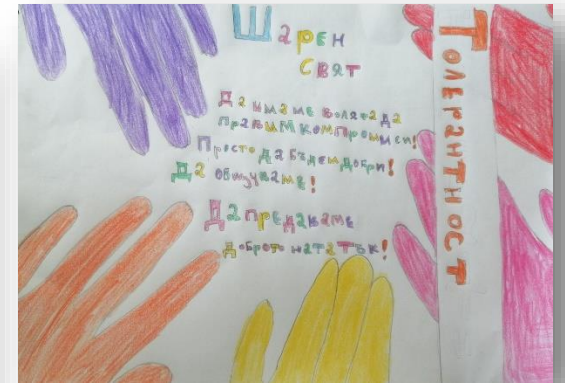 Шарен
свят
Да имаме волята да
правим компромиси!
Просто да бъдем добри!
Да обичуваме!
Да предаваме
доброто нататък!
Толерантност